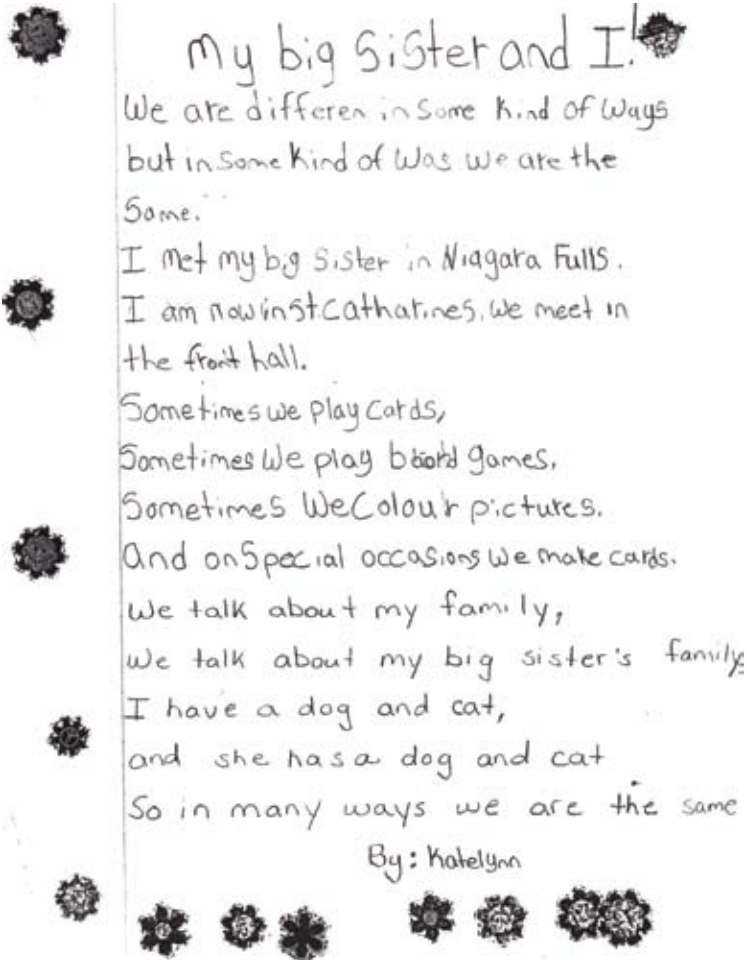 My big Sister and I!
We are differen in some kind of ways
but in some kind of was we are the
Same.
I met my big sister in Niagara Falls.
I am now in St. Catharines. We meet in
the front hall.
Sometimes we play cards,
Sometimes we play board games,
Sometimes we colour pictures.
And on special occasions we make cards.
We talk about my family,
We talk about my big sister's family
I have a dog and cat,
and she has a dog and cat
So in many ways we are the same
By: Katelynn